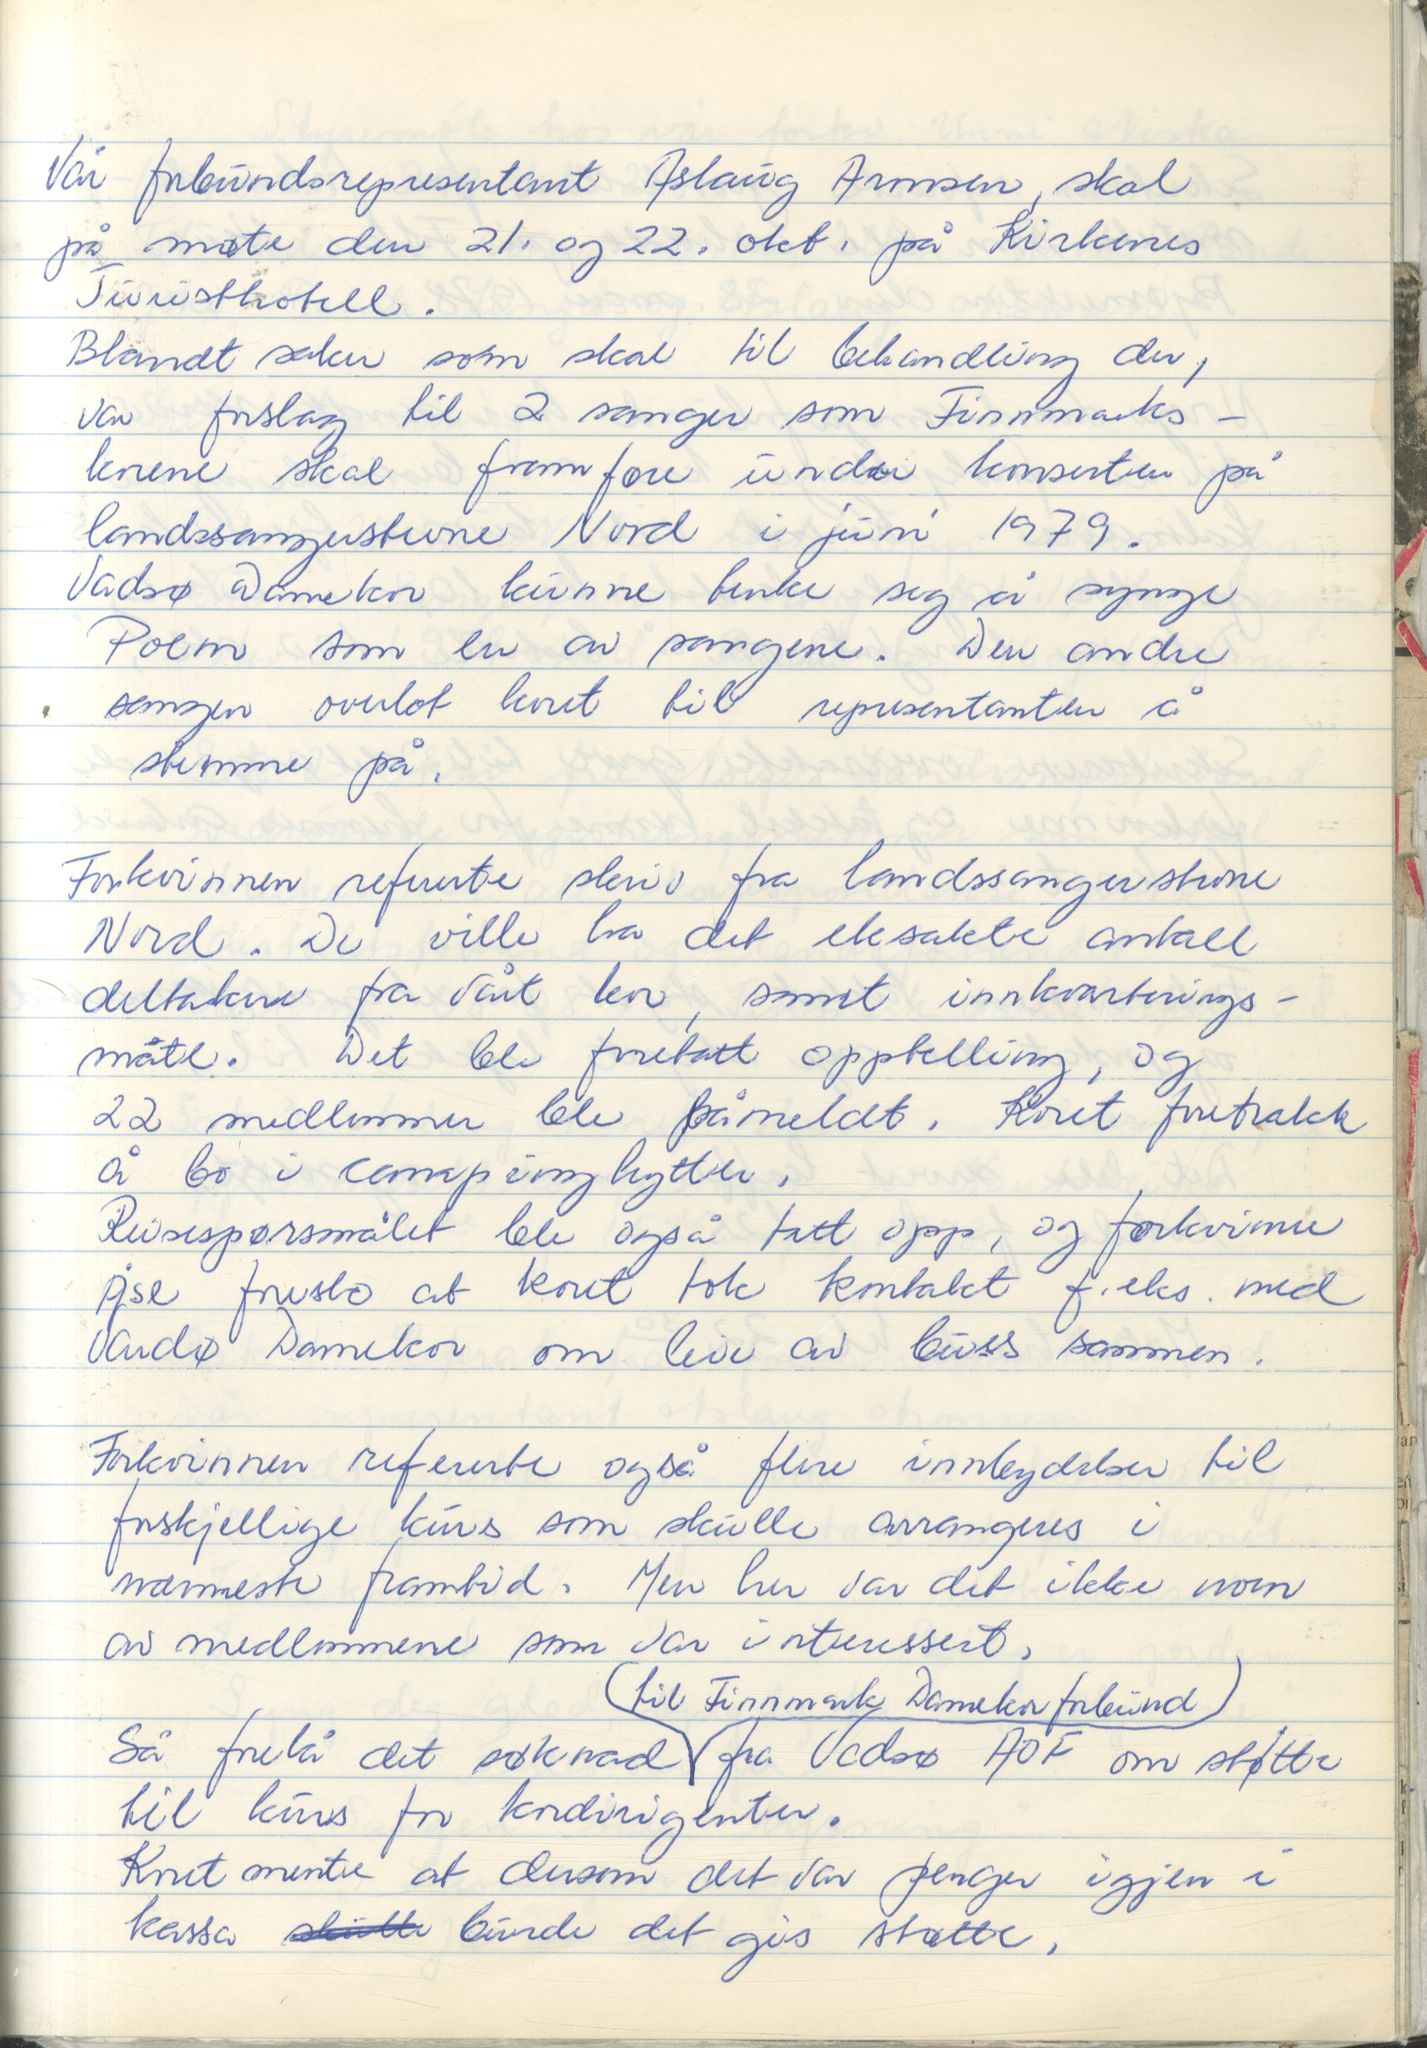 Vår forbundsrepresentant Aslaug Aronsen, skal
på møte den 21. og 22. okt. på Kirkenes
Turisthotell.
Blandt saker som skal til behandling der,
var forslag til 2 sanger som Finnmarks-
korene skal framføre under konserten på
landssangerstevne Nord i juni 1979.
Vadsø Damekor kunne tenke seg å synge
Poem som en av sangene. Den andre
sangen overlot koret til representanten å
stemme på.
Forkvinnen refererte skriv fra landssangerstevne
Nord. De ville ha det eksakte antall
deltakere fra vårt kor, samt innkvarterings-
måte. Det ble foretatt opptelling, og
22 medlemmer ble påmeldt. Koret foretrakk
å bo i campinghytter.
Reisespørsmålet ble også tatt opp, og forkvinne
Åse foreslo at koret tok kontakt f.eks. med
Vardø Damekor om leie av buss sammen.
Forkvinnen refererte også flere innbydelser til
forskjellige kurs som skulle arrangeres i
nærmeste framtid. Men her var det ikke noen
av medlemmene som var interessert.
(til Finnmark Damekorforbund)
Så forelå det søknad fra Vadsø AOF om støtte
til kurs for kordirigenter.
Koret mente at dersom det var penger igjen i
kassa skulle burde det gis støtte.